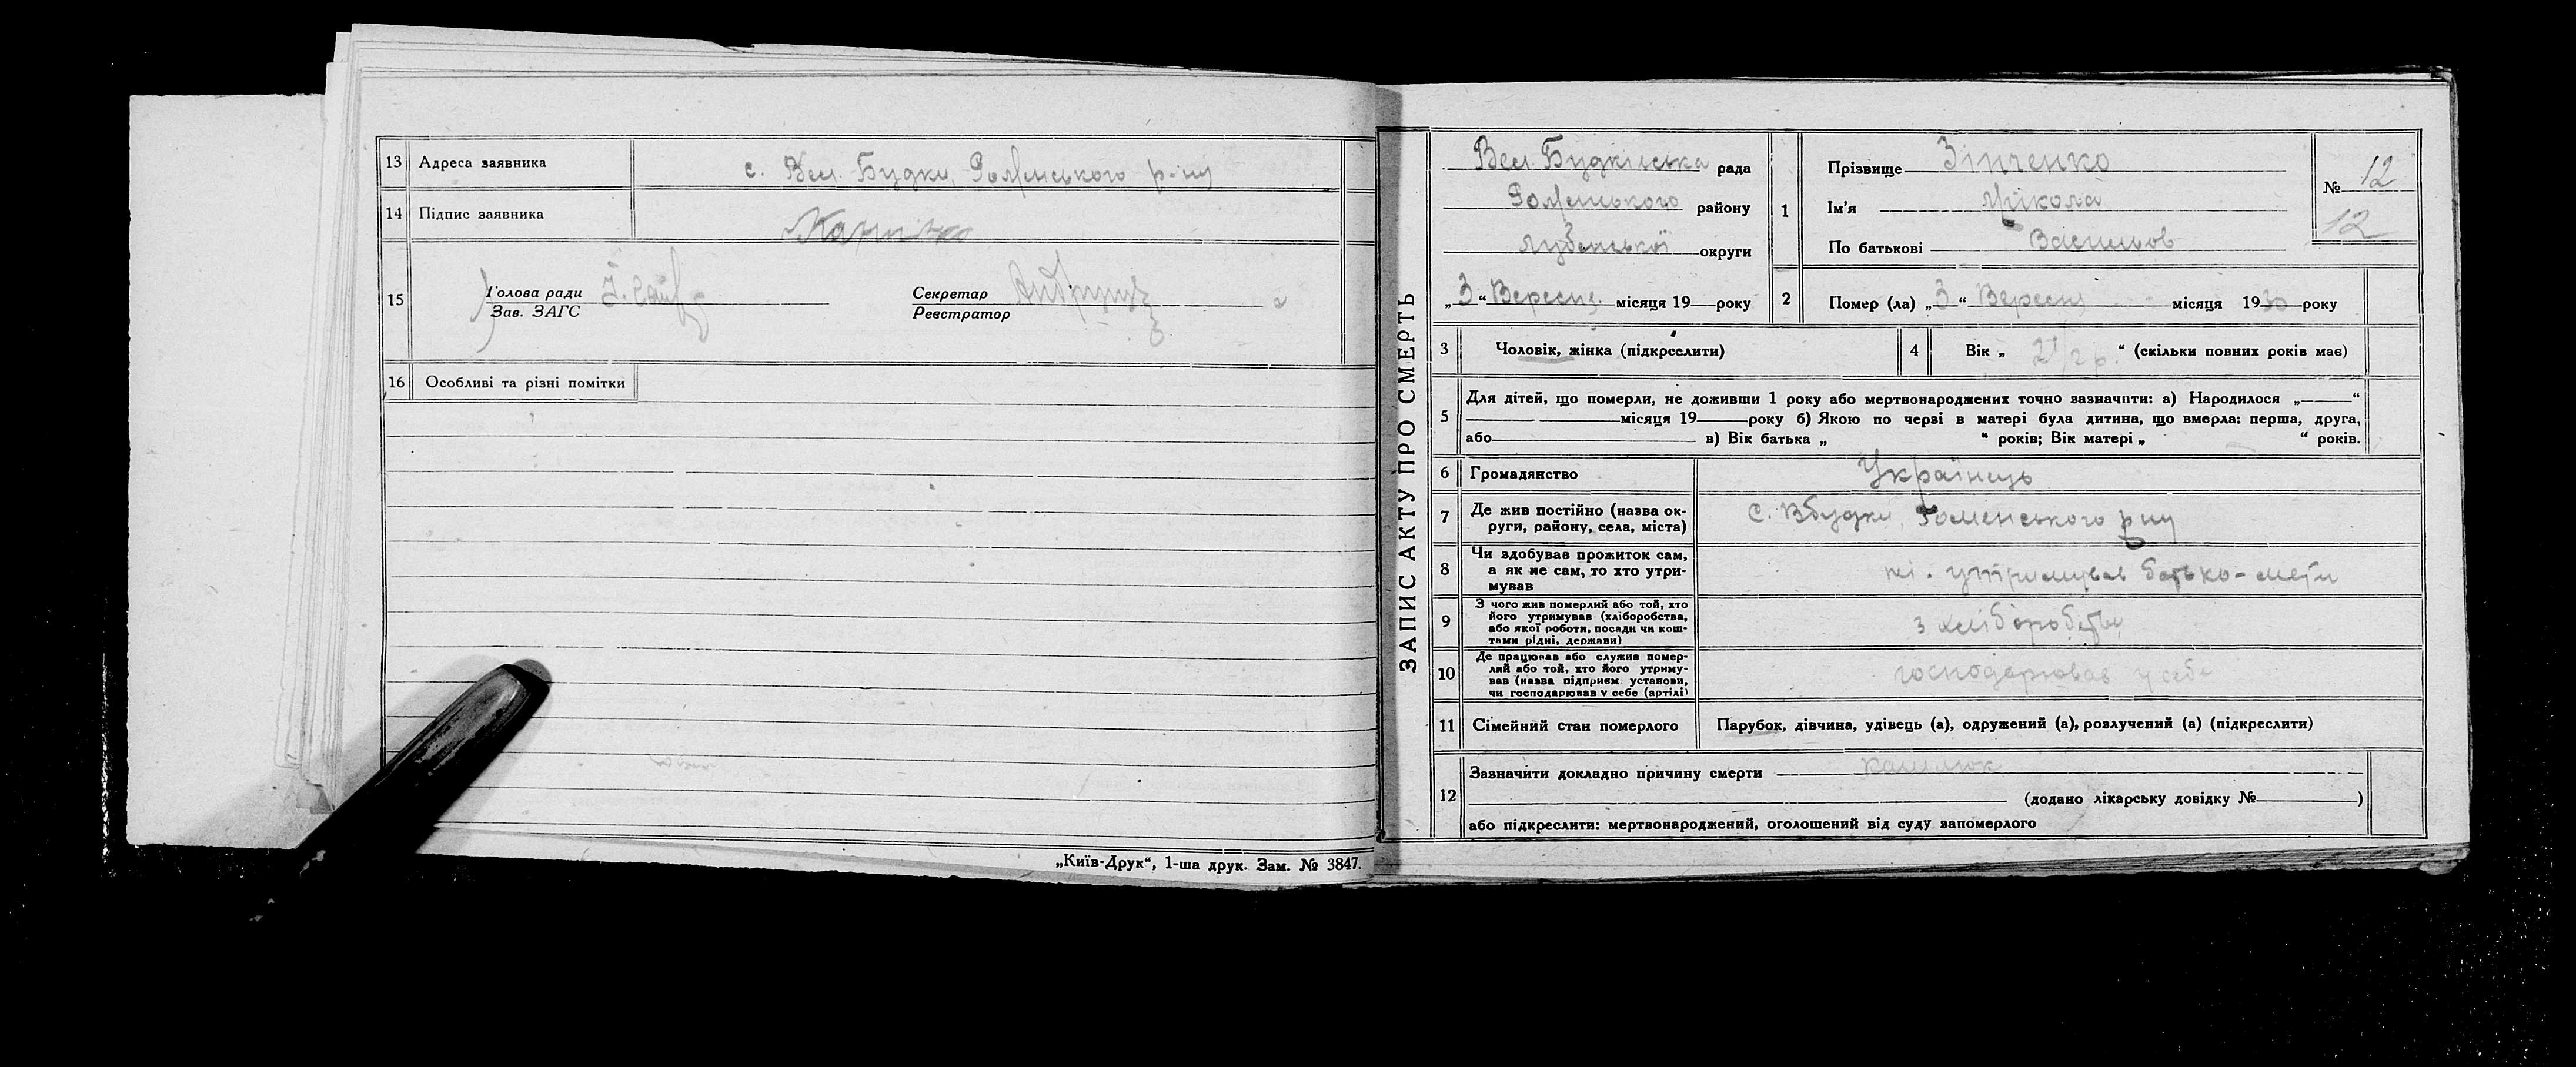 13 Адреса заявника с. Вел. Будки, Роменського р-ну
14 Підпис заявника
15 Голова ради
Зав. ЗАГС
Секретар
Реєстратор
16 Особливі та різні помітки
„Київ-Друк“, 1-ша друк. Зам. № 3847.
ЗАПИС АКТУ ПРО СМЕРТЬ
Вел. Будківська рада
Роменського району
Лубенської округи
„3“ Вересня місяця 19 року
1 Прізвище Зінченко
Ім'я Микола
По батькові Васильов
№ 12
12
2 Помер (ла) „3“ Вересня місяця 1930 року
3 Чоловік, жінка (підкреслити)
4 Вік „ “ (скільки повних років має)
5 Для дітей, що померли, не доживши 1 року або мертвонароджених точно зазначити: а) Народилося „ “
місяця 19 року б) Якою по черзі в матері була дитина, що вмерла: перша, друга,
або в) Вік батька „ “ років; Вік матері „ “ років.
6 Громадянство Українець
7 Де жив постійно (назва ок-
руги, району, села, міста) с. Вбудки, Роменського рну
8 Чи здобував прожиток сам,
а як не сам, то хто утри-
мував ні. утримував батько-мати
9 З чого жив померлий або той, хто
його утримував (хліборобства,
або якої роботи, посади чи кош-
тами рідні, держави) з хліборобства
10 Де працював або служив помер-
лий або той, хто його утриму-
вав (назва підприєм. установи,
чи господарював у себе (артілі) господарював у себе
11 Сімейний стан померлого Парубок, дівчина, удівець (а), одружений (а), розлучений (а) (підкреслити)
12 Зазначити докладно причину смерти кашлюк
(додано лікарську довідку № )
або підкреслити: мертвонароджений, оголошений від суду запомерлого